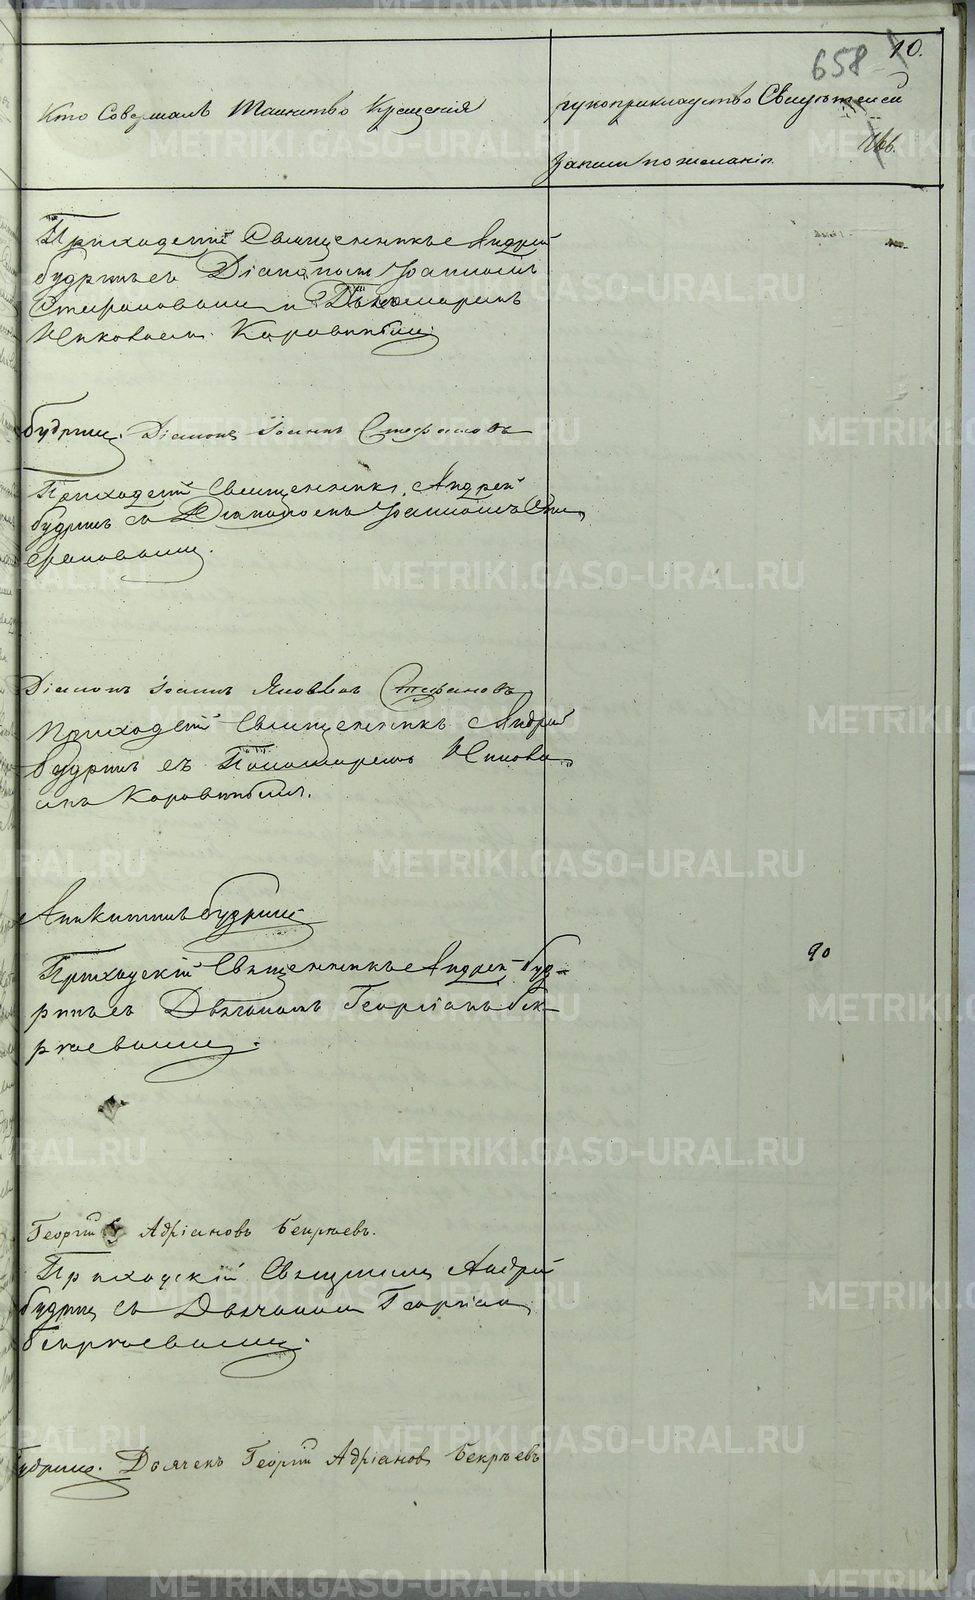 658 10.
Кто Совершалъ Таинство Крещенія
рукоприкладство Свидѣтелей
166.
записи по желанію.
Приходскій Священникъ Андрей
Будринъ съ Діакономъ Іоанномъ
Стефановымъ и Пономаремъ
Николаемъ Коровинымъ.
Будринъ. Діаконъ Іоаннъ Стефановъ
Приходскій Священникъ Андрей
Будринъ съ Діакономъ Іоанномъ Сте
фановымъ.
Діаконъ Іоаннъ Стефановъ
Приходскій Священникъ Андрей
Будринъ съ Пономаремъ Никола
емъ Коровинымъ.
Будринъ
90
Приходскій Священникъ Андрей Буд-
ринъ съ Дьячкомъ Георгіемъ Бек-
ряевымъ.
Георгій Адріановъ Бекряевъ.
Приходскій Священникъ Андрей
Будринъ съ Дьячкомъ Георгіемъ
Бекряевымъ.
Будринъ. Дьячекъ Георгій Адріановъ Бекряевъ
METRIKI.GASO-URAL.RU